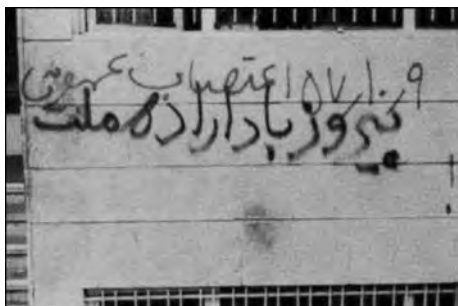 ۵۷/۱۰/۹ اعتصاب عمومی
پیروز باد اراده ملت